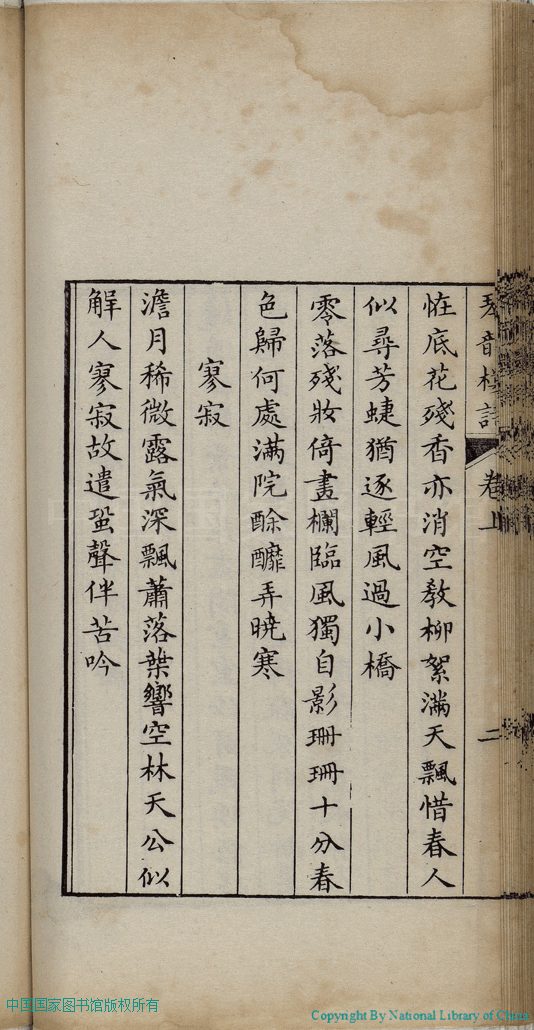 琴音樓詩 卷上 二
恠底花殘香亦消空敎柳絮滿天飄惜春人
似尋芳蜨猶逐輕風過小橋
零落殘妝倚畫欄臨風獨自影珊珊十分春
色歸何處滿院酴醿弄曉寒
寥寂
澹月稀微露氣深飄蕭落葉響空林天公似
解人寥寂故遣蛩聲伴苦吟
中国国家图书馆版权所有
Copyright By National Library of China